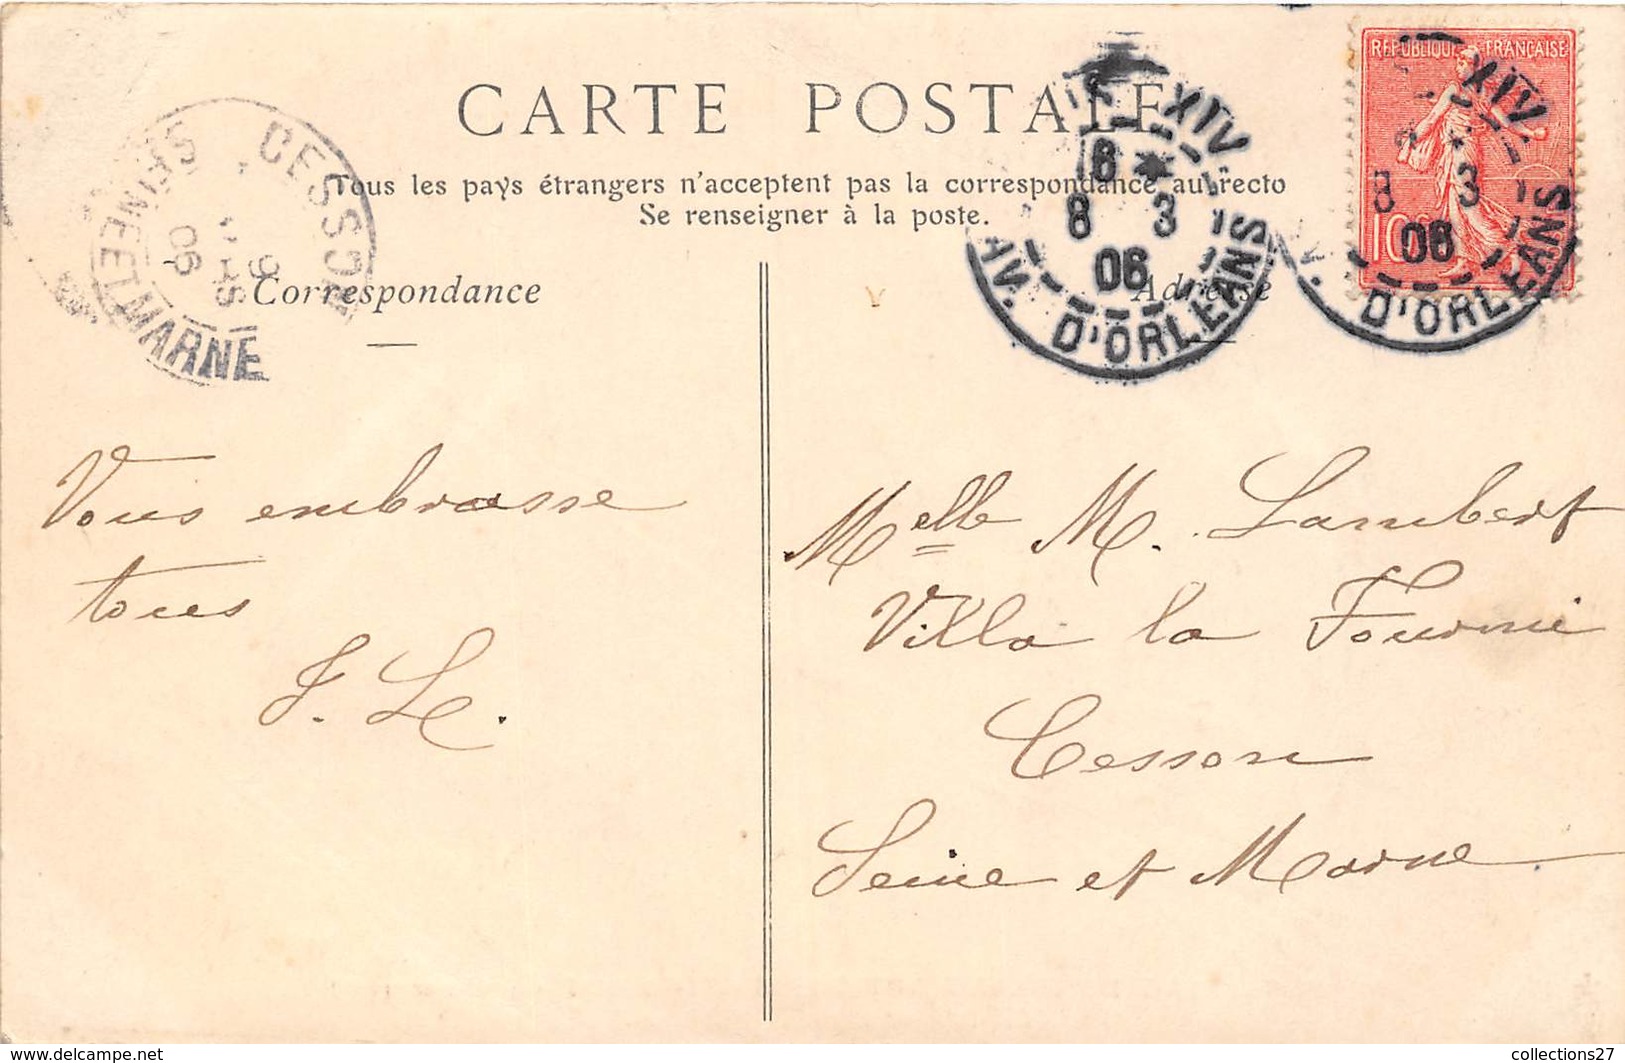 CARTE POSTALE
Tous les pays étrangers n'acceptent pas la correspondance au recto
Se renseigner à la poste.
Correspondance
Adresse
REPUBLIQUE FRANÇAISE
10
XIV.
6 *
8 3
06
AV. D'ORLEANS
XIV.
8 3
06
D'ORLEANS
CESSON
9
06
SEINE ET MARNE
Vous embrasse
tous
J. L.
Melle M. Lambert
Villa la Fourmi
Cesson
Seine et Marne
www.delcampe.net
collections27